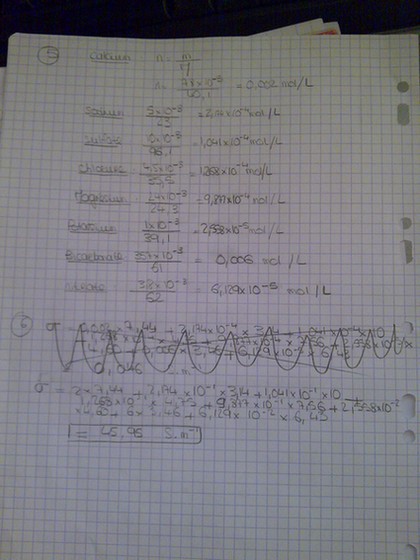 5 Calcium n = m/M
n = 78×10⁻³/40,1 = 0,002 mol/L
Sodium 5×10⁻³/23 = 2,174×10⁻⁴ mol/L
Sulfate 10×10⁻³/96,1 = 1,041×10⁻⁴ mol/L
Chlorure 4,5×10⁻³/35,5 = 1,268×10⁻⁴ mol/L
Magnésium 24×10⁻³/24,3 = 9,877×10⁻⁴ mol/L
Potassium 1×10⁻³/39,1 = 2,558×10⁻⁵ mol/L
Bicarbonate 357×10⁻³/61 = 0,006 mol/L
Nitrate 3,8×10⁻³/62 = 6,129×10⁻⁵ mol/L
6 σ = 0,002 × 7,44 + 2,174×10⁻⁴ × 3,14 + 1,041×10⁻⁴ × 10
0,046
σ = 2 × 7,44 + 2,174 × 10⁻¹ × 3,14 + 1,041 × 10⁻¹ × 10 +
1,268 × 10⁻¹ × 4,75 + 9,877 × 10⁻¹ × 7,56 + 2,558 × 10⁻²
× 4,60 + 6 × 3,46 + 6,129 × 10⁻² × 6,43
= 45,95 S.m⁻¹